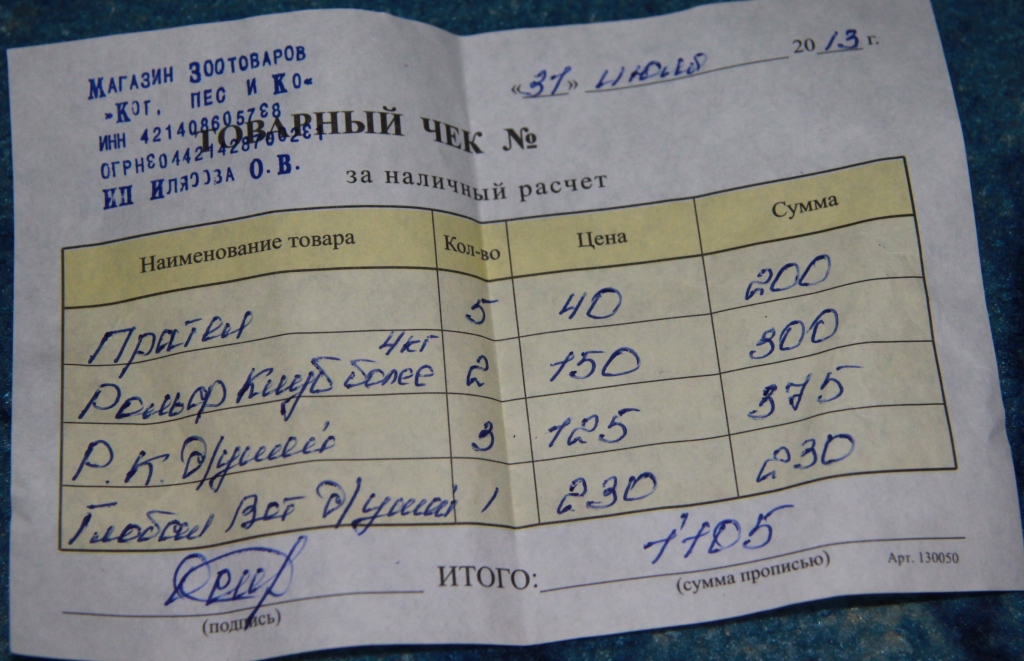 Магазин Зоотоваров
"Кот, пес и Ко"
ИНН 421408605738
ИП О.В.
«31» июля 2013 г.
ТОВАРНЫЙ ЧЕК №
за наличный расчет
Наименование товара Кол-во Цена Сумма
Прател 5 40 200
4кг
Рольф Клуб более 2 150 300
Р.К. д/ушей 3 125 375
Глобал Вет д/ушей 1 230 230
ИТОГО: 1105
(подпись) (сумма прописью) Арт. 130050